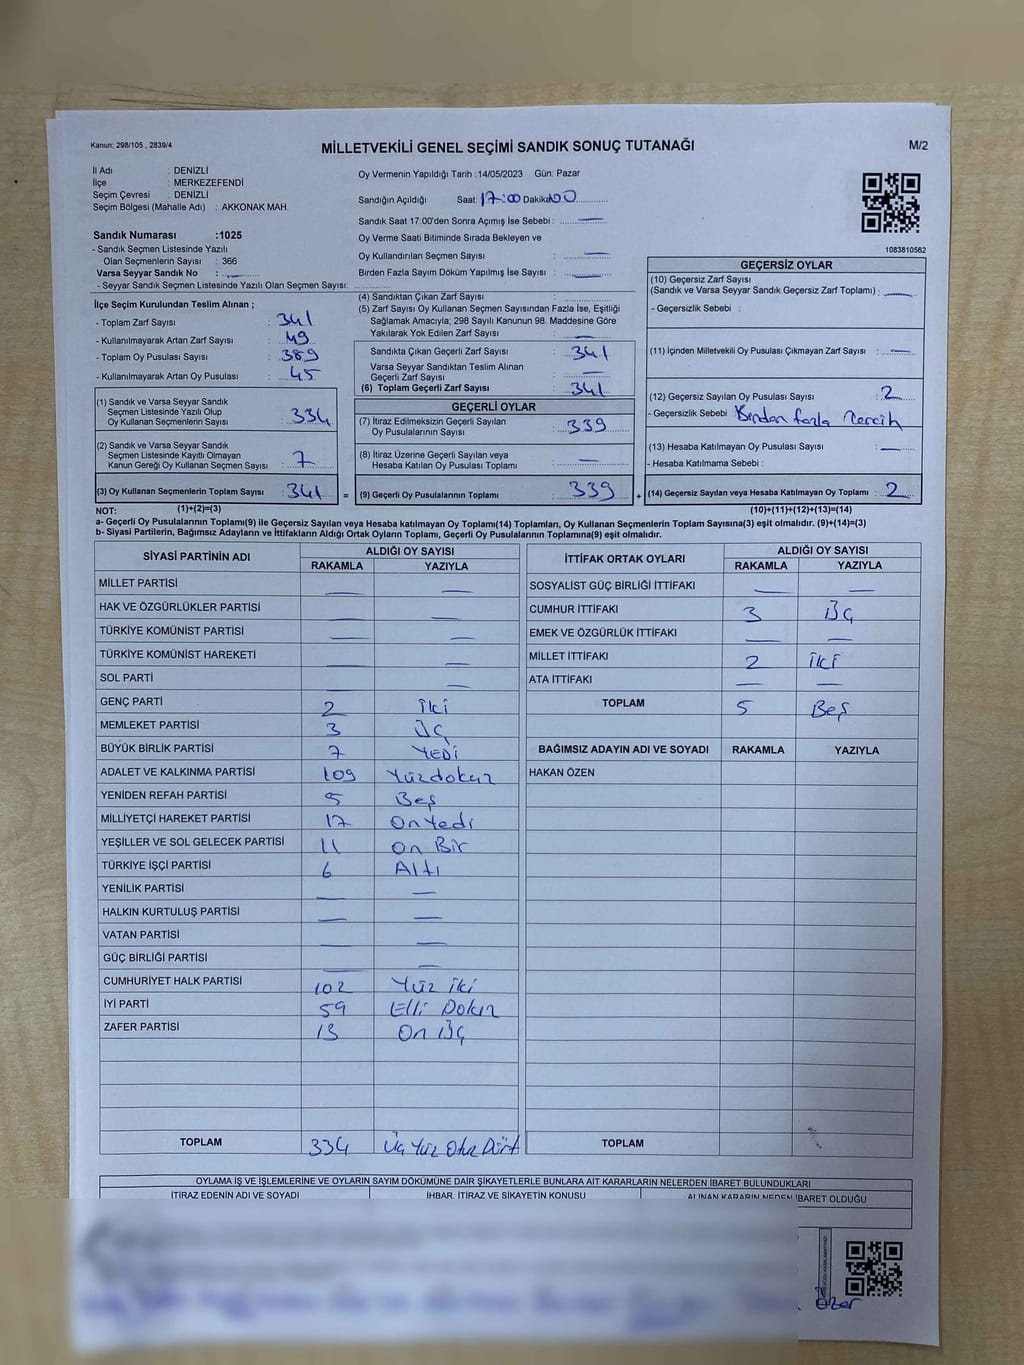 Kanun; 298/105 , 2839/4
MİLLETVEKİLİ GENEL SEÇİMİ SANDIK SONUÇ TUTANAĞI
M/2
İl Adı : DENİZLİ
İlçe : MERKEZEFENDİ
Seçim Çevresi : DENİZLİ
Seçim Bölgesi (Mahalle Adı) : AKKONAK MAH.
Sandık Numarası :1025
- Sandık Seçmen Listesinde Yazılı
Olan Seçmenlerin Sayısı : 366
Varsa Seyyar Sandık No :
- Seyyar Sandık Seçmen Listesinde Yazılı Olan Seçmen Sayısı:
Oy Vermenin Yapıldığı Tarih :14/05/2023 Gün: Pazar
Sandığın Açıldığı Saat: 17:00 Dakika:00
Sandık Saat 17:00'den Sonra Açımış İse Sebebi : —
Oy Verme Saati Bitiminde Sırada Bekleyen ve
Oy Kullandırılan Seçmen Sayısı : —
Birden Fazla Sayım Döküm Yapılmış İse Sayısı : —
1083810562
İlçe Seçim Kurulundan Teslim Alınan ;
- Toplam Zarf Sayısı : 341
- Kullanılmayarak Artan Zarf Sayısı : 49
- Toplam Oy Pusulası Sayısı : 389
- Kullanılmayarak Artan Oy Pusulası : 45
(1) Sandık ve Varsa Seyyar Sandık
Seçmen Listesinde Yazılı Olup
Oy Kullanan Seçmenlerin Sayısı : 334
(2) Sandık ve Varsa Seyyar Sandık
Seçmen Listesinde Kayıtlı Olmayan
Kanun Gereği Oy Kullanan Seçmen Sayısı : 7
(3) Oy Kullanan Seçmenlerin Toplam Sayısı : 341 =
(1)+(2)=(3)
(4) Sandıktan Çıkan Zarf Sayısı :
(5) Zarf Sayısı Oy Kullanan Seçmen Sayısından Fazla İse, Eşitliği
Sağlamak Amacıyla; 298 Sayılı Kanunun 98. Maddesine Göre
Yakılarak Yok Edilen Zarf Sayısı : —
Sandıkta Çıkan Geçerli Zarf Sayısı : 341
Varsa Seyyar Sandıktan Teslim Alınan
Geçerli Zarf Sayısı : —
(6) Toplam Geçerli Zarf Sayısı : 341
GEÇERLİ OYLAR
(7) İtiraz Edilmeksizin Geçerli Sayılan
Oy Pusulalarının Sayısı : 339
(8) İtiraz Üzerine Geçerli Sayılan veya
Hesaba Katılan Oy Pusulası Toplamı : —
(9) Geçerli Oy Pusulalarının Toplamı : 339 +
GEÇERSİZ OYLAR
(10) Geçersiz Zarf Sayısı
(Sandık ve Varsa Seyyar Sandık Geçersiz Zarf Toplamı) : —
- Geçersizlik Sebebi :
(11) İçinden Milletvekili Oy Pusulası Çıkmayan Zarf Sayısı : —
(12) Geçersiz Sayılan Oy Pusulası Sayısı : 2
- Geçersizlik Sebebi : Birden fazla Tercih
(13) Hesaba Katılmayan Oy Pusulası Sayısı : —
- Hesaba Katılmama Sebebi :
(14) Geçersiz Sayılan veya Hesaba Katılmayan Oy Toplamı : 2
(10)+(11)+(12)+(13)=(14)
NOT:
a- Geçerli Oy Pusulalarının Toplamı(9) ile Geçersiz Sayılan veya Hesaba katılmayan Oy Toplamı(14) Toplamları, Oy Kullanan Seçmenlerin Toplam Sayısına(3) eşit olmalıdır. (9)+(14)=(3)
b- Siyasi Partilerin, Bağımsız Adayların ve İttifakların Aldığı Ortak Oyların Toplamı, Geçerli Oy Pusulalarının Toplamına(9) eşit olmalıdır.
SİYASİ PARTİNİN ADI ALDIĞI OY SAYISI
RAKAMLA YAZIYLA
MİLLET PARTİSİ — —
HAK VE ÖZGÜRLÜKLER PARTİSİ — —
TÜRKİYE KOMÜNİST PARTİSİ — —
TÜRKİYE KOMÜNİST HAREKETİ — —
SOL PARTİ — —
GENÇ PARTİ 2 İki
MEMLEKET PARTİSİ 3 Üç
BÜYÜK BİRLİK PARTİSİ 7 YEDİ
ADALET VE KALKINMA PARTİSİ 109 Yüzdokuz
YENİDEN REFAH PARTİSİ 5 Beş
MİLLİYETÇİ HAREKET PARTİSİ 17 On Yedi
YEŞİLLER VE SOL GELECEK PARTİSİ 11 On Bir
TÜRKİYE İŞÇİ PARTİSİ 6 Altı
YENİLİK PARTİSİ — —
HALKIN KURTULUŞ PARTİSİ — —
VATAN PARTİSİ — —
GÜÇ BİRLİĞİ PARTİSİ — —
CUMHURİYET HALK PARTİSİ 102 Yüz iki
İYİ PARTİ 59 Elli Dokuz
ZAFER PARTİSİ 13 On Üç
TOPLAM 334 Üç Yüz Otuz Dört
İTTİFAK ORTAK OYLARI ALDIĞI OY SAYISI
RAKAMLA YAZIYLA
SOSYALİST GÜÇ BİRLİĞİ İTTİFAKI — —
CUMHUR İTTİFAKI 3 Üç
EMEK VE ÖZGÜRLÜK İTTİFAKI — —
MİLLET İTTİFAKI 2 İki
ATA İTTİFAKI — —
TOPLAM 5 Beş
BAĞIMSIZ ADAYIN ADI VE SOYADI RAKAMLA YAZIYLA
HAKAN ÖZEN
TOPLAM
OYLAMA İŞ VE İŞLEMLERİNE VE OYLARIN SAYIM DÖKÜMÜNE DAİR ŞİKAYETLERLE BUNLARA AİT KARARLARIN NELERDEN İBARET BULUNDUKLARI
İTİRAZ EDENİN ADI VE SOYADI İHBAR, İTİRAZ VE ŞİKAYETİN KONUSU ALINAN KARARIN NEDEN İBARET OLDUĞU
Özer